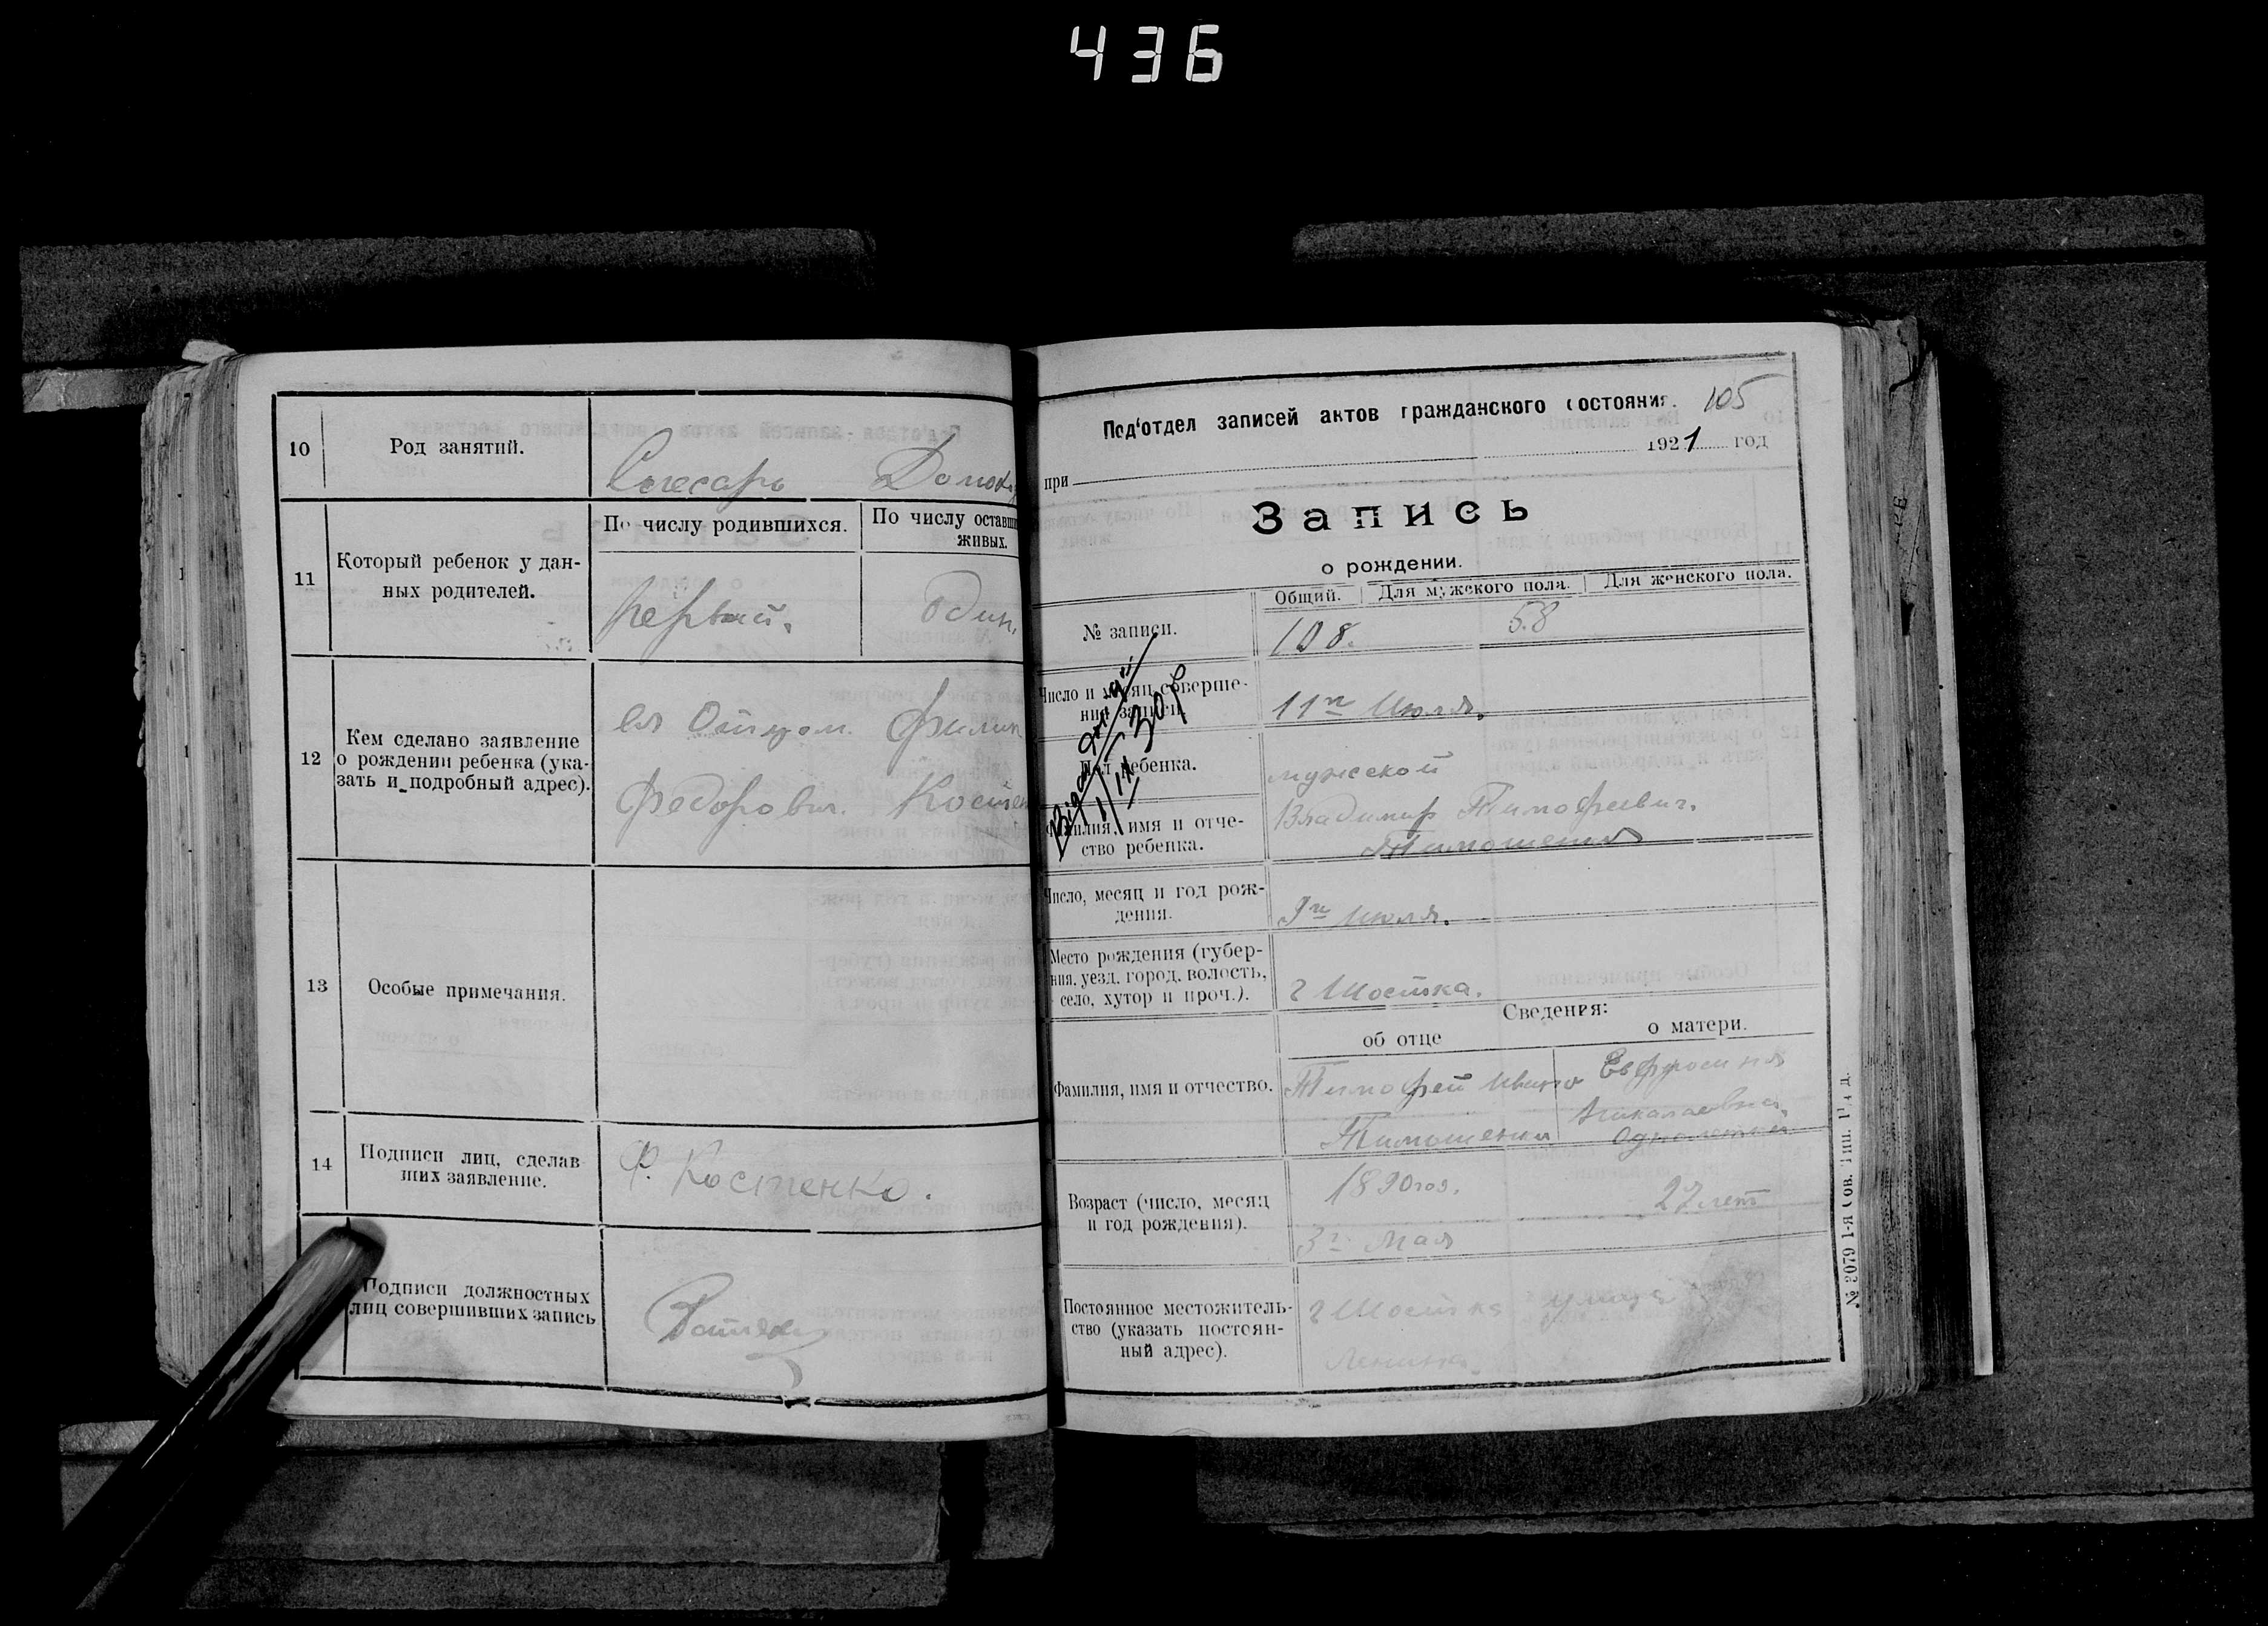 436
10
Род занятий.
Слесарь
11
Который ребенок у дан-
ных родителей.
По числу родившихся.
По числу оставш
живых.
первый.
один.
12
Кем сделано заявление
о рождении ребенка (ука-
зать и подробный адрес).
ея Отцом. Филип
Федорович. Костен
13
Особые примечания.
14
Подписи лиц, сделав
ших заявление.
Ф. Костенко.
Подписи должностных
лиц совершивших запись
Под'отдел записей актов гражданского состояния.
105
1921 год
при
Запись
о рождении.
№ записи.
Общий.
Для мужского пола.
Для женского пола.
108.
58
Число и месяц соверше-
ния записи
11го Июля.
Пол ребенка.
мужской
Фамилия, имя и отче-
ство ребенка.
Владимир Тимофеевич.
Тимошенко
Число, месяц и год рож-
дения.
9го Июля.
Место рождения (губер-
ния, уезд, город, волость,
село, хутор и проч.).
г Шостка.
Сведения:
об отце
о матери.
Фамилия, имя и отчество.
Тимофей
Тимошенко
Евфросиния
Николаевна.
Возраст (число, месяц
и год рождения).
1890 год.
3го Мая
27 лет
Постоянное местожитель-
ство (указать постоян-
ный адрес).
г Шостка улица
Ленина.
№ 2079 1-я Сов. Тип.